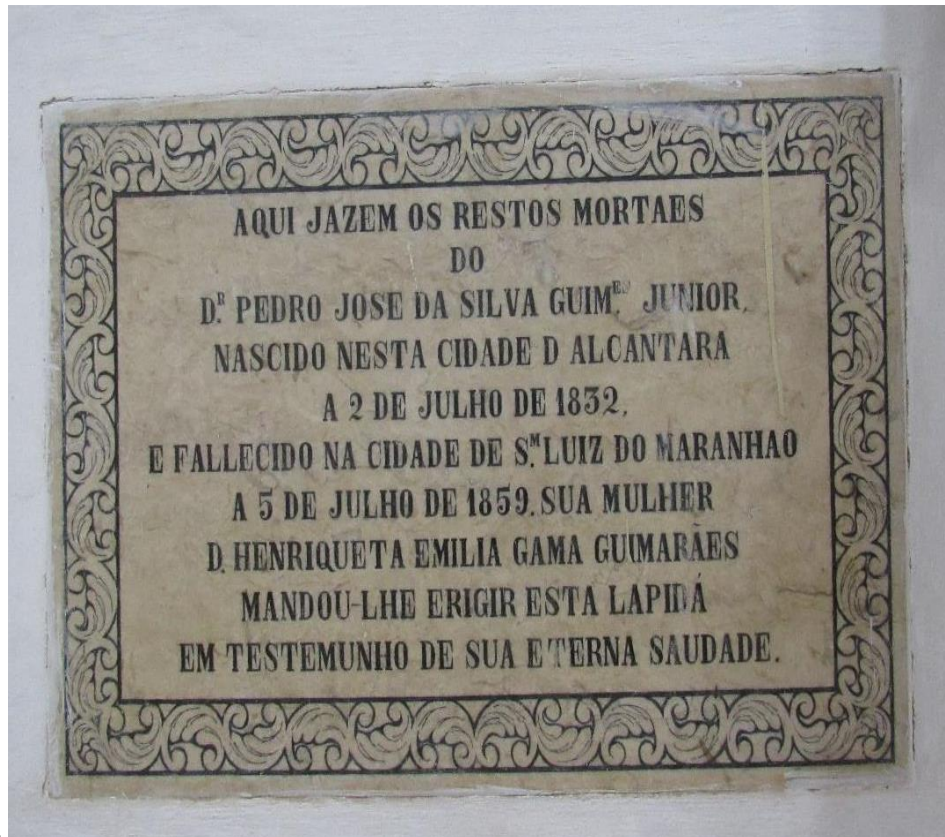 AQUI JAZEM OS RESTOS MORTAES
DO
D.R PEDRO JOSE DA SILVA GUIM.ES JUNIOR,
NASCIDO NESTA CIDADE D ALCANTARA
A 2 DE JULHO DE 1832,
E FALLECIDO NA CIDADE DE S.M LUIZ DO MARANHAO
A 5 DE JULHO DE 1859. SUA MULHER
D. HENRIQUETA EMILIA GAMA GUIMARÃES
MANDOU-LHE ERIGIR ESTA LAPIDÁ
EM TESTEMUNHO DE SUA ETERNA SAUDADE.